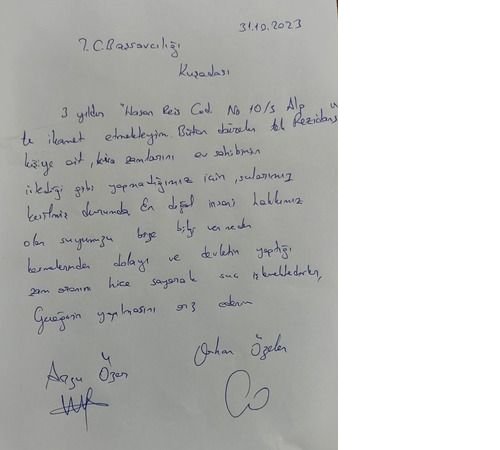 31.10.2023
T.C. Başsavcılığı
Kuşadası
3 yıldır "Hasan Reis Cad. No 10/3 Alp
te ikamet etmekteyim. Bütün daireler tek Rezidans
kişiye ait, kira zamlarını ev sahibinin
istediği gibi yapmadığımız için, sularımız
kesilmiş durumda. En doğal insani hakkımız
olan suyumuzu bize bilgi vermeden
kesmelerinden dolayı ve devletin yaptığı
zam oranını hice sayarak suç işlemektedirler,
Gereğinin yapılmasını arz ederim
Arzu Özen Orhan Özelen